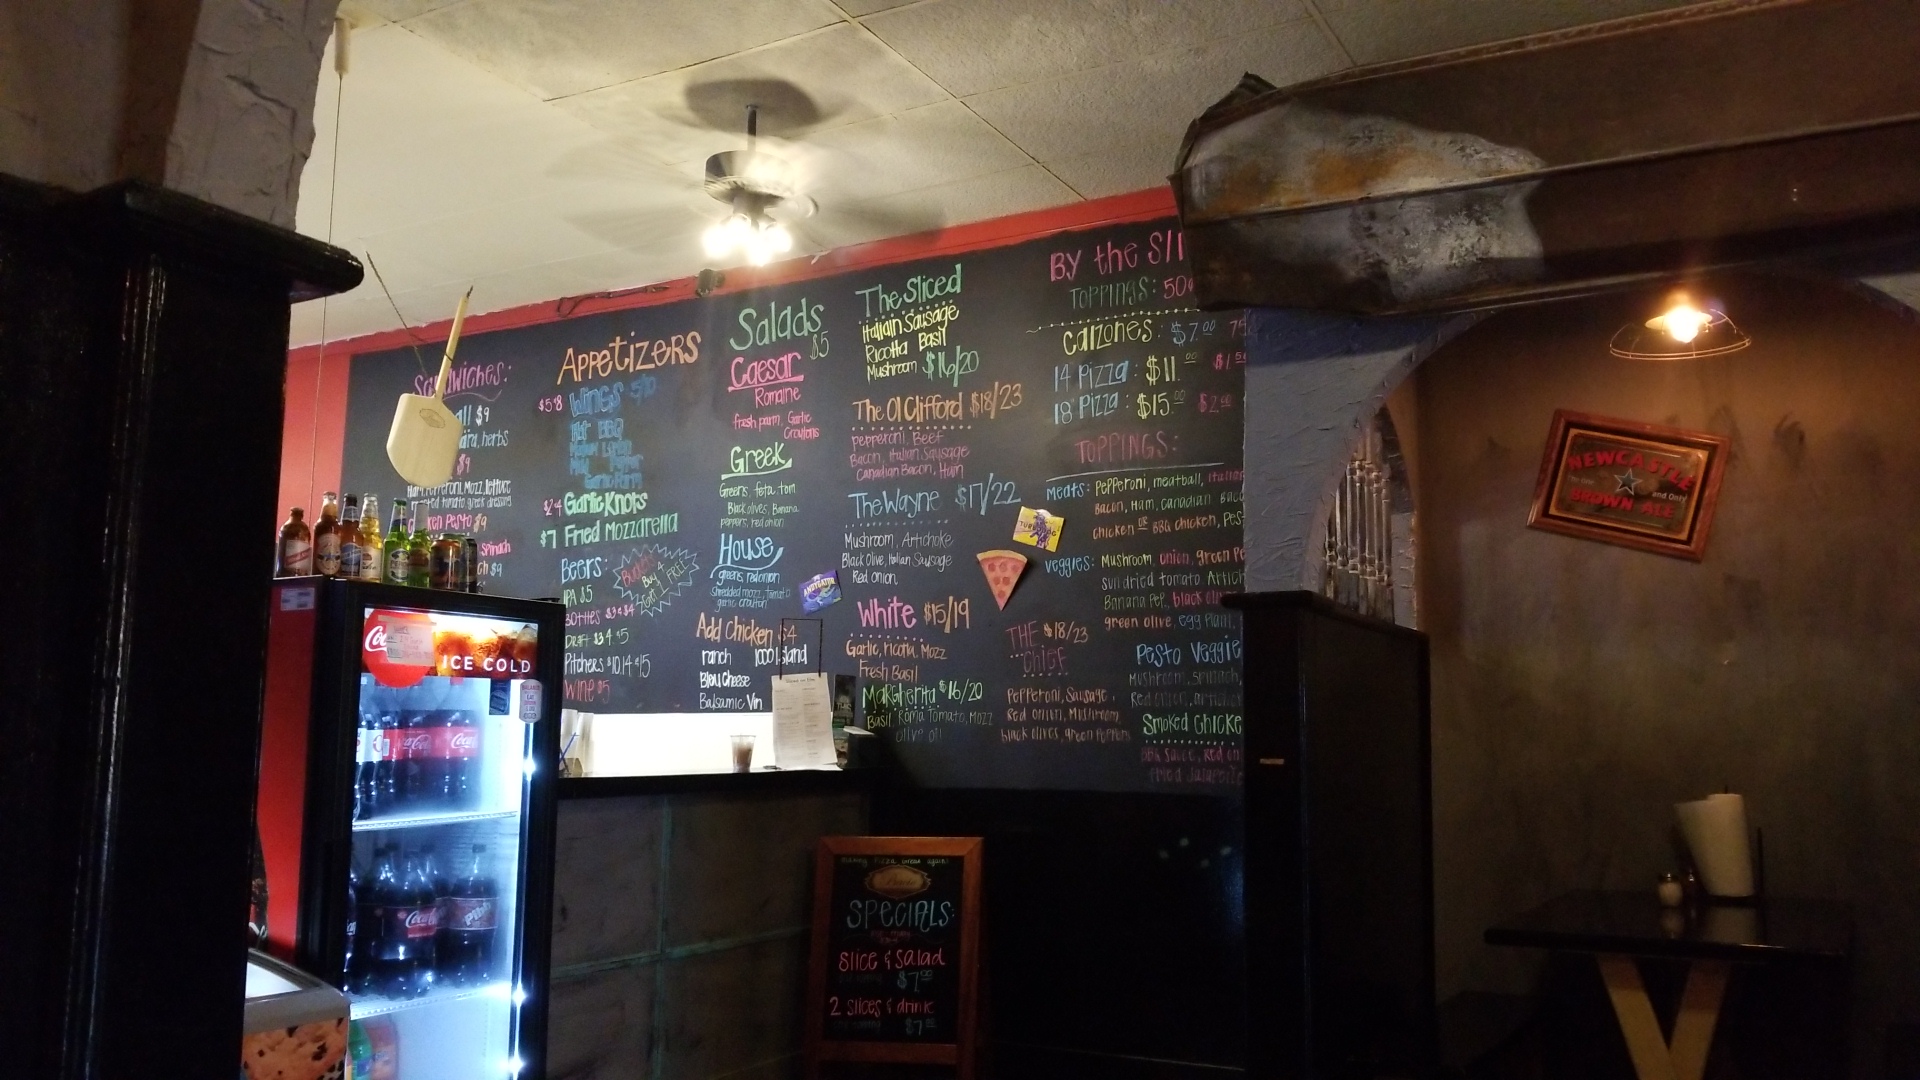 Sandwiches:
$9
herbs
$9
Ham, Pepperoni, Mozz, lettuce
tomato, greek dressing
Pesto $9
Spinach
$9
Appetizers
$5.8 Wings 5/10
Hot BBQ
Garlic Parm
Garlic Knots
$7 Fried Mozzarella
Beers:
Buckets
Buy 4
Get 1 FREE
IPA $5
Bottles $3 & $4
Draft $3 4 $5
Pitchers $10, 14 & 15
Wine $5
Salads
$5
Caesar
Romaine
fresh parm, Garlic
Croutons
Greek
Greens, feta, tom
Black olives, Banana
peppers, red onion
House
greens, red onion
shredded mozz, tomato
garlic crouton
Add Chicken $4
ranch 1000 Island
Bleu Cheese
Balsamic Vin
The Sliced
Italain Sausage
Ricotta Basil
Mushroom $16/20
The Ol Clifford $18/23
Pepperoni, Beef
Bacon, Italian Sausage
Canadian Bacon, Ham
The Wayne $17/22
Mushroom, Artichoke
Black Olive, Italian Sausage
Red Onion,
White $15/19
Garlic, ricotta, Mozz
Fresh Basil
Margherita $16/20
Basil, Roma Tomato, Mozz
olive oil
By the Sli
Toppings: 50¢
Calzones: $7.00 75
14 Pizza: $11.00 $1.5
18" Pizza: $15.00 $2.00
Toppings:
Meats: Pepperoni, meatball, Italian
Bacon, Ham, Canadian Baco
chicken or BBQ chicken, Pes
Veggies: Mushroom, onion, green Pe
sundried tomato Artich
Banana Pep., black oliv
green olive, egg plant,
THE $18/23
Chief
Pepperoni, Sausage,
Red onion, Mushroom,
black olives, green Peppers
Pesto Veggie
Mushroom, Spinach,
Red onion, artichok
Smoked Chicke
BBQ Sauce, red on
fried Jalapeño
TURBODOG
ANDYGATOR
NEWCASTLE
The One and Only
BROWN ALE
Coc
ICE COLD
Coca-Cola
Coca-Cola
Coca-Cola
Pibb
Making Pizza Great again!
SPECIALS:
Slice & Salad
$7.00
2 slices & drink
$7.00